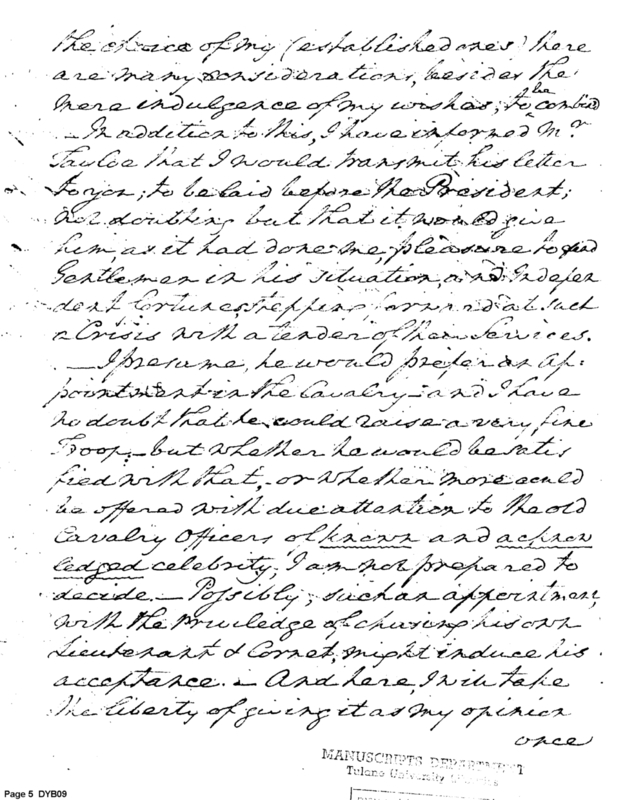 the choice of my (established ones) there
are many considerations, besides the
mere indulgence of my wishes, to be combined
– In addition to this, I have informed Mr
Tayloe that I would transmit his letter
to you; to be laid before the President;
not doubting but that it would give
him, as it had done me pleasure to find
Gentlemen in his situation, and Indepen
dent fortunes stepping forward at such
a Crisis with a tender of their Services.
– I presume, he would prefer an ap:
pointment in the Cavalry – and I have
no doubt that he could raise a very fine
Troop, – but whether he would be satis
fied with that, – or whether more could
be offered with due attention to the old
Cavalry Officers of known and acknow
ledged celebrity, I am not prepared to
decide. – Possibly, such an appointment,
with the Priviledge of chusing his own
Lieutenant & Cornet, might induce his
acceptance. – And here, I will take
the liberty of giving it as my opinion
once
MANUSCRIPTS DEPARTMENT
Tulane University
Page 5 DYB09